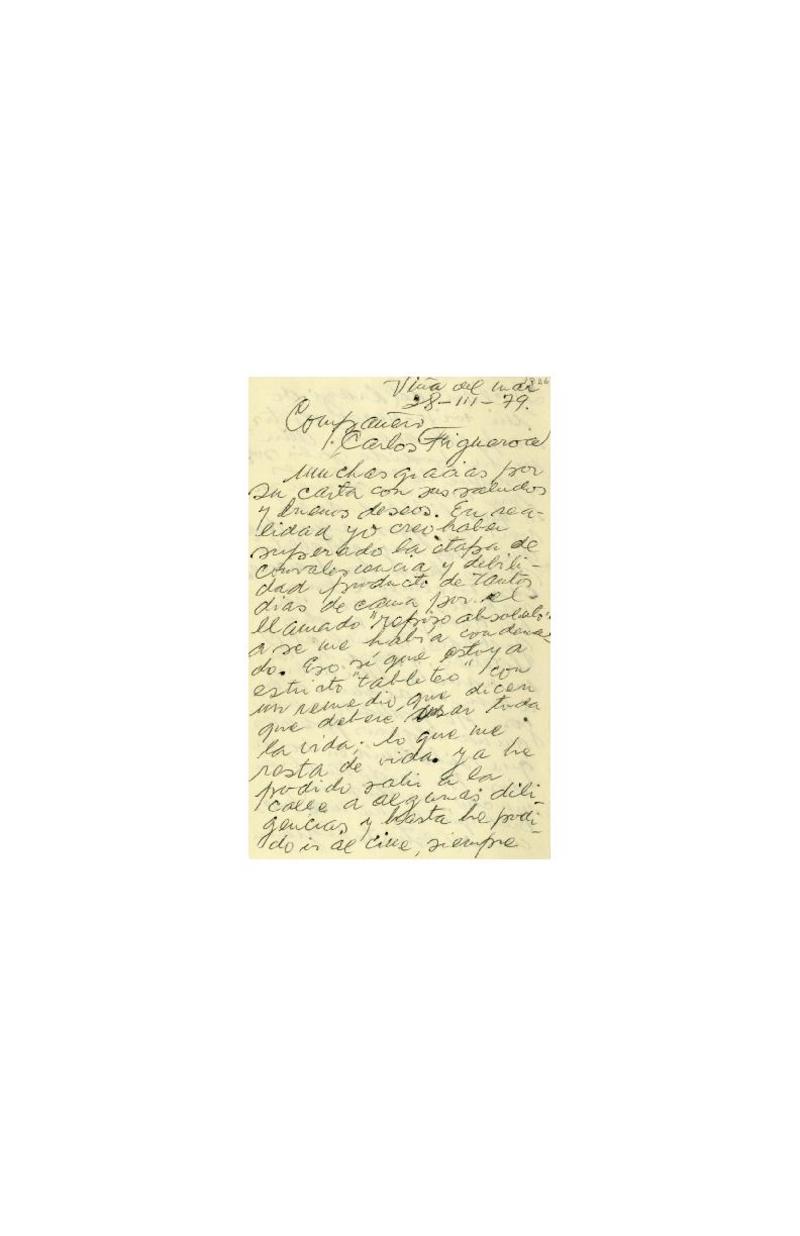 Viña del Mar
28-III-79.
Compañero
Carlos Figueroa
Muchas gracias por
su carta con sus saludos
y buenos deseos. En rea-
lidad yo creo haber
superado la etapa de
convalescencia y debili-
dad producto de tantos
dias de cama por el
llamado "reposo absoluto"
a se me había condena
do. Eso sí que estoy a
estricto "tableteo" con
un remedio, que dicen
que deberé usar toda
la vida; lo que me
resta de vida. ya he
podido salir a la
calle a algunas dili-
gencias y hasta he podi-
do ir al cine, siempre